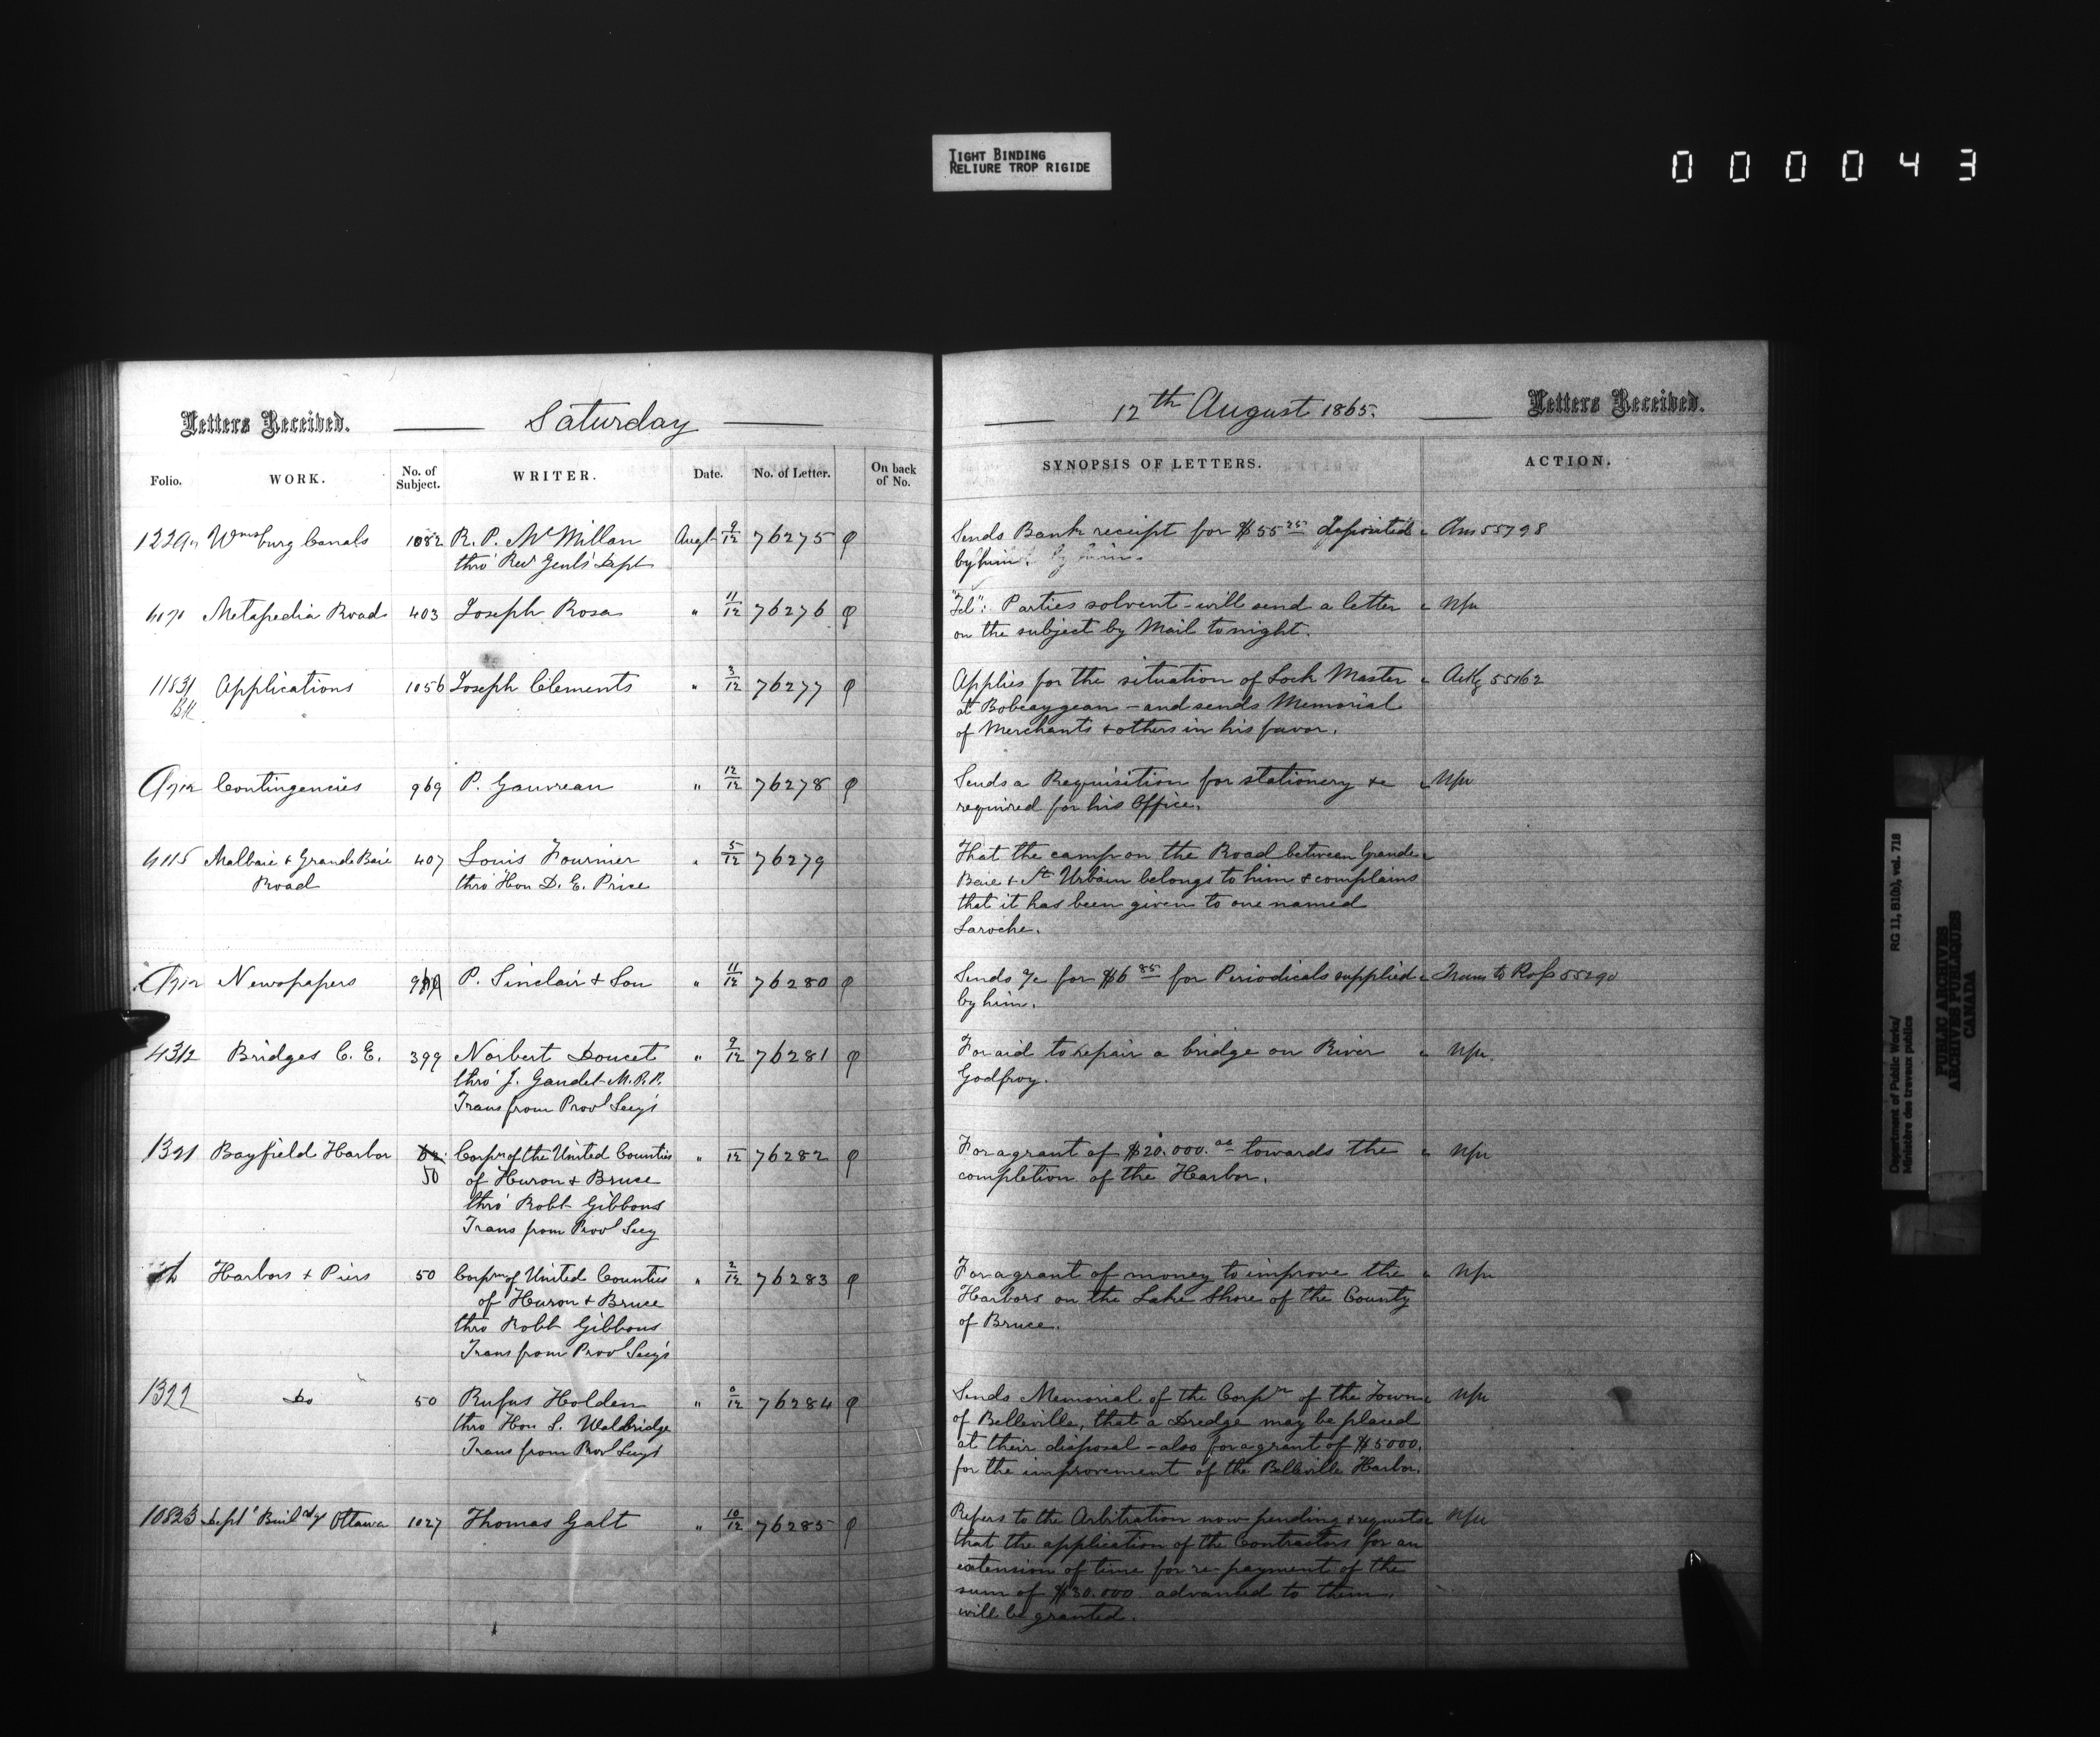 TIGHT BINDING
RELIURE TROP RIGIDE
000043
Letters Received. Saturday 12th August 1865. Letters Received.
Folio. WORK. No. of Subject. WRITER. Date. No. of Letter. On back of No. SYNOPSIS OF LETTERS. ACTION.
Wmsburg Canals 1082 R. P. McMillan Augt 9/12 76275 Sends Bank receipt for $55 25 deposited 55798
thro' Recr Genl's Dept by him.
Metapedia Road 403 Joseph Rosa " 11/12 76276 "Tel": Parties solvent - will send a letter
on the subject by Mail tonight.
Applications 1056 Joseph Clements " 3/12 76277 Applies for the situation of Lock Master 55162
at Bobcaygean - and sends Memorial
of Merchants & others in his favor.
Contingencies 969 P. Gauvreau " 12/12 76278 Sends a Requisition for stationery &c
required for his Office.
4115 Malbaie & Grande Baie 407 Louis Fournier " 5/12 76279 That the camp on the Road between Grande
Road thro' Hon D. E. Price Baie & St Urbain belongs to him & complains
that it has been given to one named
Laroche.
Newspapers P. Sinclair & Son " 11/12 76280 Sends a/c for $6 85 for Periodicals supplied Trans to Ross 55290
by him.
4312 Bridges C. E. 399 Norbert Doucet " 9/12 76281 For aid to repair a bridge on River
thro' J. Gaudet M.P.P. Godfroy.
Trans from Provl Secy's
1321 Bayfield Harbor 50 Corpn of the United Counties " 12 76282 For a grant of $20.000.00 towards the
of Huron & Bruce completion of the Harbor.
thro' Robt Gibbons
Trans from Provl Secy
Harbors & Piers 50 Corpn of United Counties " 2/12 76283 For a grant of money to improve the
of Huron & Bruce Harbors on the Lake Shore of the County
thro Robt Gibbons of Bruce.
Trans from Provl Secy's
1322 Do 50 Rufus Holden " 76284 Sends Memorial of the Corpn of the Town
thro Hon L. Wallbridge of Belleville, that a Dredge may be placed
Trans from Provl Secys at their disposal - also for a grant of $5000.
for the improvement of the Belleville Harbor.
10823 Deptl Buildgs Ottawa 1027 Thomas Galt " 10/12 76285 Refers to the Arbitration now pending & requests
that the application of the Contractors for an
extension of time for re-payment of the
sum of $30.000 advanced to them,
will be granted.
Department of Public Works/ RG 11, B1(b), vol. 718
Ministère des travaux publics
PUBLIC ARCHIVES
ARCHIVES PUBLIQUES
CANADA